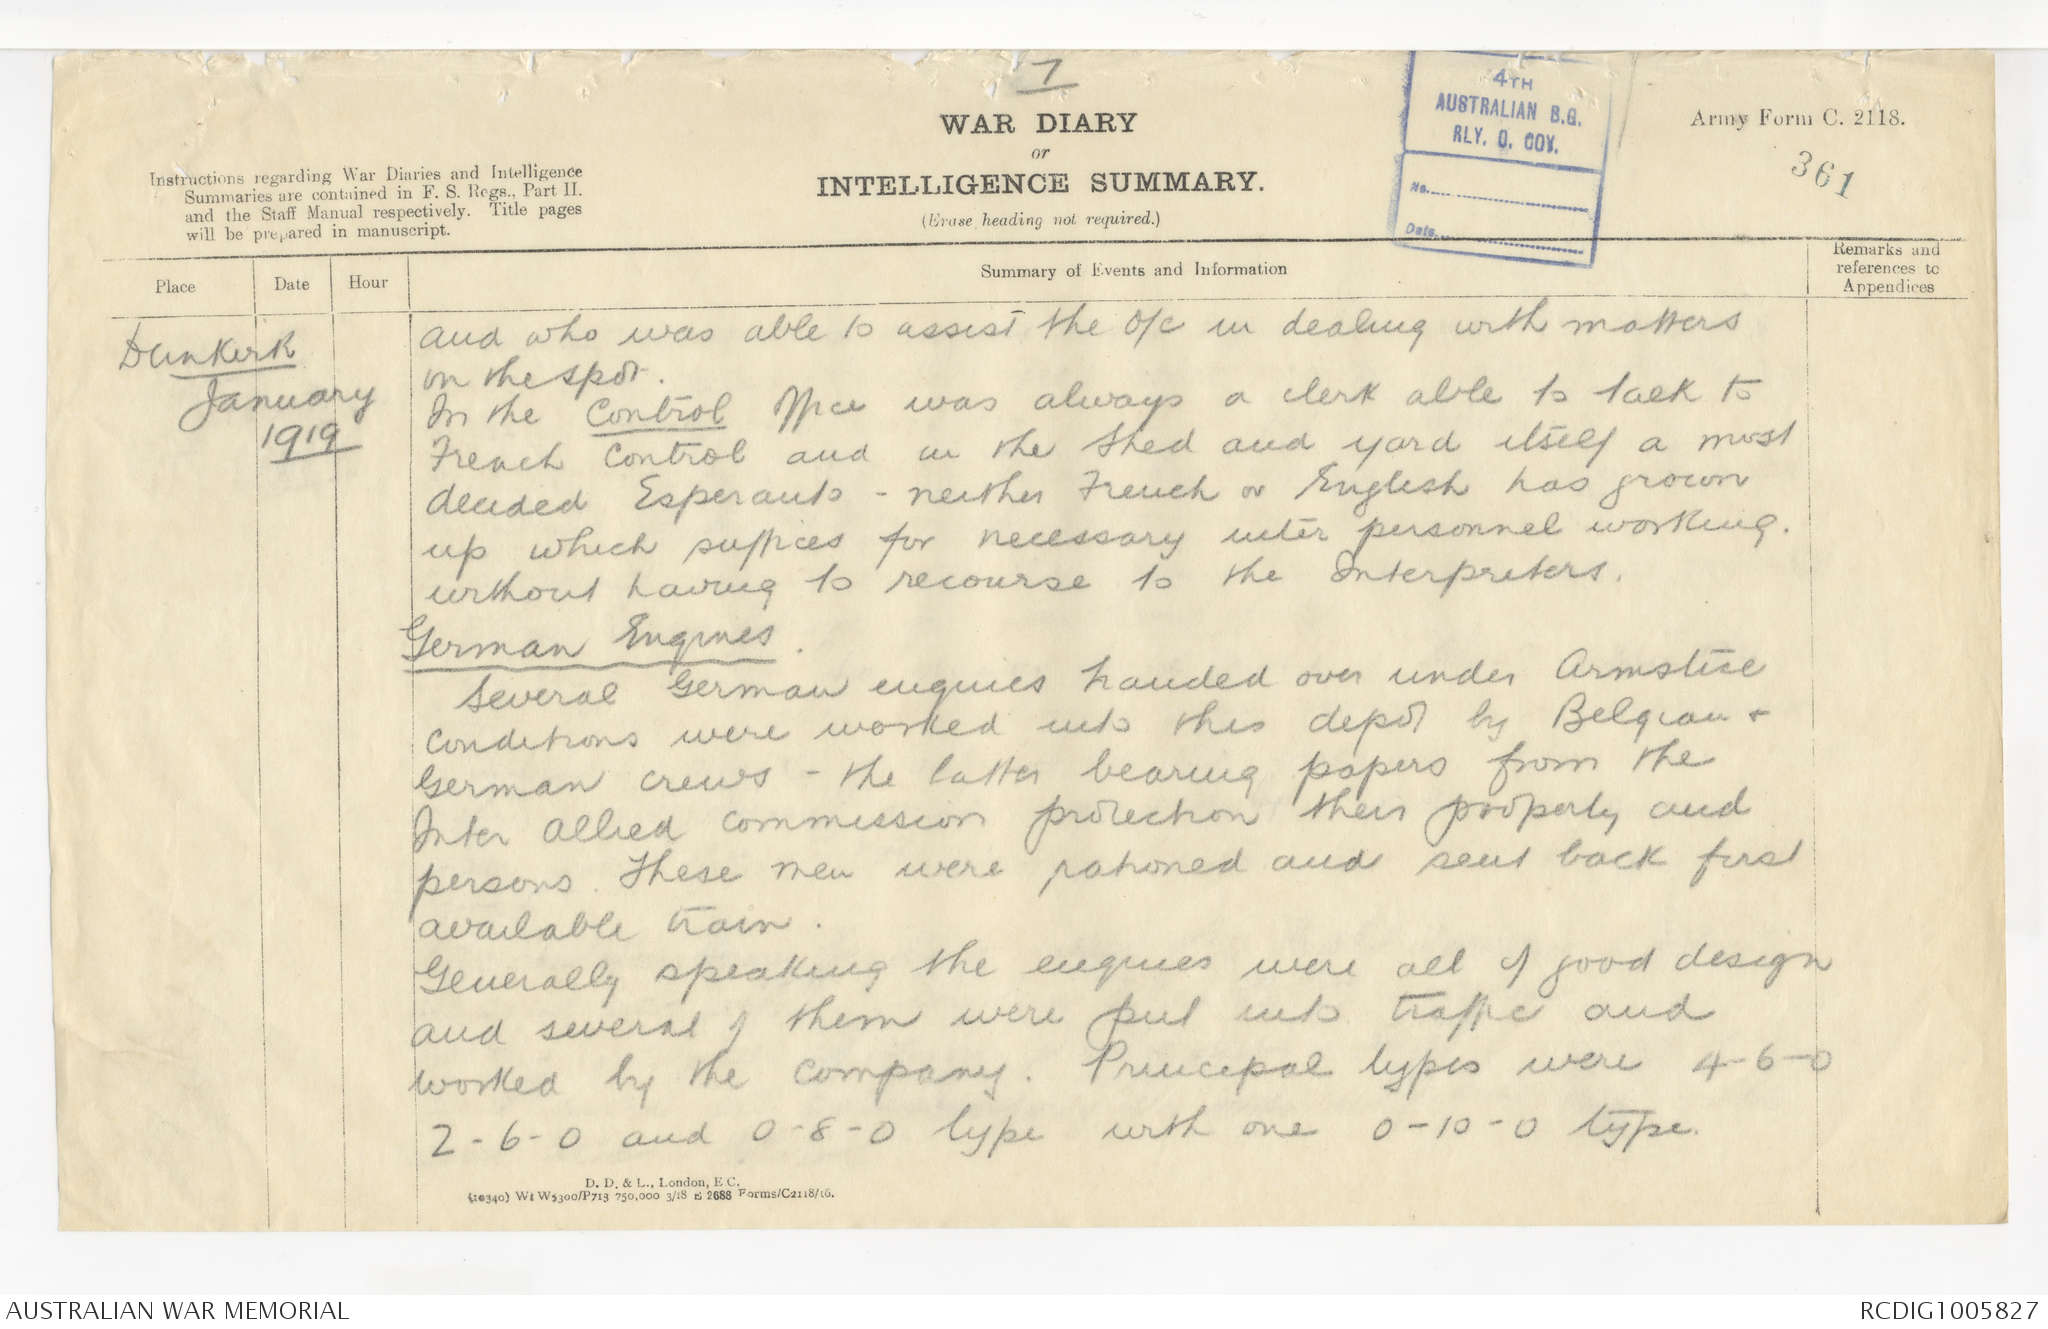 7
4TH
AUSTRALIAN B.G.
RLY. O. COY.
No.
Date
Army Form C. 2118.
361
WAR DIARY
or
INTELLIGENCE SUMMARY.
(Erase heading not required.)
Instructions regarding War Diaries and Intelligence
Summaries are contained in F. S. Regs., Part II.
and the Staff Manual respectively. Title pages
will be prepared in manuscript.
Place
Date
Hour
Summary of Events and Information
Remarks and
references to
Appendices
Dunkirk
January
1919
and who was able to assist the O/c in dealing with matters
on the spot.
In the Control Office was always a clerk able to talk to
French Control and in the shed and yard itself a most
decided Esperanto - neither French or English has grown
up which suffices for necessary inter personnel working.
without having to recourse to the Interpreters.
German Engines.
Several German engines handed over under Armstice
conditions were worked into this depot by Belgian +
German crews - the latter bearing papers from the
Inter Allied Commission protection their property and
persons. These men were rationed and sent back first
available train.
Generally speaking the engines were all of good design
and several of them were put into traffic and
worked by the Company. Principal types were 4-6-0
2-6-0 and 0-8-0 type with one 0-10-0 type.
D. D. & L., London, E.C.
(10340) Wt W5300/P713 750,000 3/18 E 2688 Forms/C2118/16.
AUSTRALIAN WAR MEMORIAL
RCDIG1005827